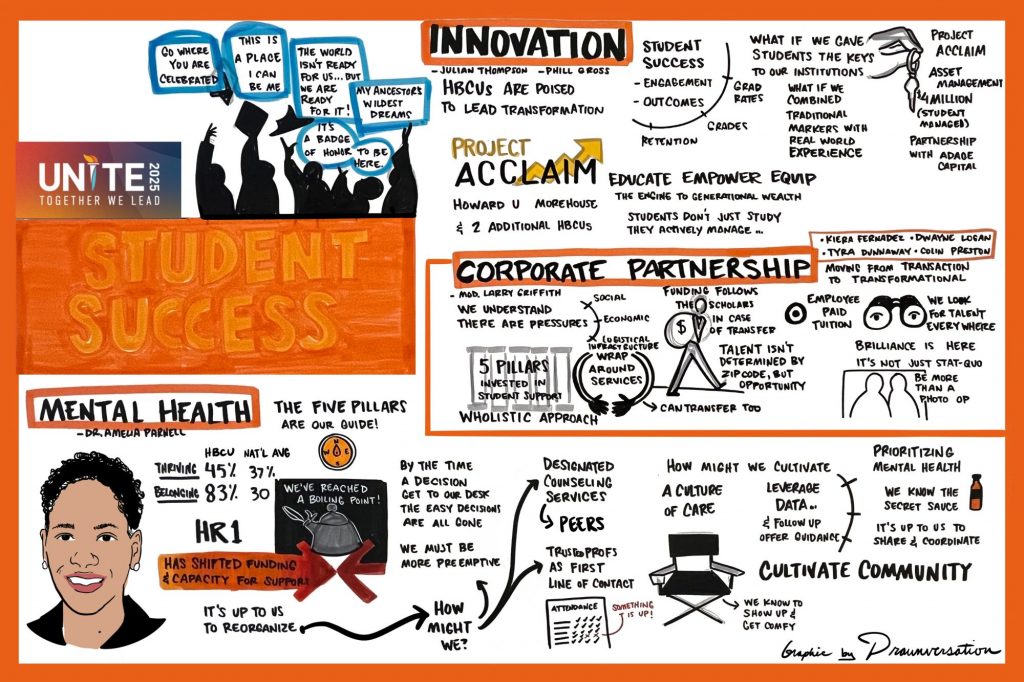 GO WHERE
YOU ARE
CELEBRATED
THIS IS
A PLACE
I CAN
BE ME
THE WORLD
ISN'T READY
FOR US... BUT
WE ARE
READY
FOR IT!
MY ANCESTOR'S
WILDEST
DREAMS
IT'S
A BADGE
OF HONOR TO BE
HERE.
UNITE 2025
TOGETHER WE LEAD
STUDENT
SUCCESS
INNOVATION
- JULIAN THOMPSON - PHILL GROSS
HBCUS ARE POISED
TO LEAD TRANSFORMATION
STUDENT
SUCCESS
- ENGAGEMENT
- OUTCOMES
RETENTION
GRAD
RATES
GRADES
WHAT IF WE GAVE
STUDENTS THE KEYS
TO OUR INSTITUTIONS
WHAT IF WE
COMBINED
TRADITIONAL
MARKERS WITH
REAL WORLD
EXPERIENCE
PROJECT
ACCLAIM
ASSET
MANAGEMENT
$4
MILLION
(STUDENT
MANAGED)
PARTNERSHIP
WITH ADAGE
CAPITAL
PROJECT
ACCLAIM
HOWARD U MOREHOUSE
& 2 ADDITIONAL HBCUS
EDUCATE EMPOWER EQUIP
THE ENGINE TO GENERATIONAL WEALTH
STUDENTS DON'T JUST STUDY
THEY ACTIVELY MANAGE...
CORPORATE PARTNERSHIP
• KIERA FERNADEZ • DWAYNE LOGAN
• TYRA DUNNAWAY • COLIN PRESTON
- MOD. LARRY GRIFFITH
WE UNDERSTAND
THERE ARE PRESSURES
SOCIAL
ECONOMIC
LOGISTICAL
INFRASTRUCTURE
5 PILLARS
INVESTED IN
STUDENT SUPPORT
WHOLISTIC APPROACH
WRAP
AROUND
SERVICES
CAN TRANSFER TOO
FUNDING FOLLOWS
THE SCHOLARS
IN CASE
OF TRANSFER
$
TALENT ISN'T
DETERMINED BY
ZIPCODE, BUT
OPPORTUNITY
MOVING FROM TRANSACTION
TO TRANSFORMATIONAL
EMPLOYEE
PAID
TUITION
WE LOOK
FOR TALENT
EVERYWHERE
BRILLIANCE IS HERE
IT'S NOT JUST STAT-QUO
BE MORE
THAN A
PHOTO OP
MENTAL HEALTH
- DR. AMELIA PARNELL
THE FIVE PILLARS
ARE OUR GUIDE!
N
W E
S
HBCU NAT'L AVG
THRIVING 45% 37%
BELONGING 83% 30
HR1
HAS SHIFTED FUNDING
& CAPACITY FOR SUPPORT
WE'VE REACHED
A BOILING POINT!
IT'S UP TO US
TO REORGANIZE
BY THE TIME
A DECISION
GET TO OUR DESK
THE EASY DECISIONS
ARE ALL GONE
WE MUST BE
MORE PREEMPTIVE
HOW
MIGHT
WE?
DESIGNATED
COUNSELING
SERVICES
PEERS
TRUSTED PROFS
AS FIRST
LINE OF CONTACT
ATTENDANCE
SOMETHING
IS UP!
HOW MIGHT WE CULTIVATE
A CULTURE
OF CARE
LEVERAGE
DATA...
& FOLLOW UP
OFFER GUIDANCE
PRIORITIZING
MENTAL HEALTH
WE KNOW THE
SECRET SAUCE
IT'S UP TO US TO
SHARE & COORDINATE
CULTIVATE COMMUNITY
WE KNOW TO
SHOW UP &
GET COMFY
Graphic by Draunversation